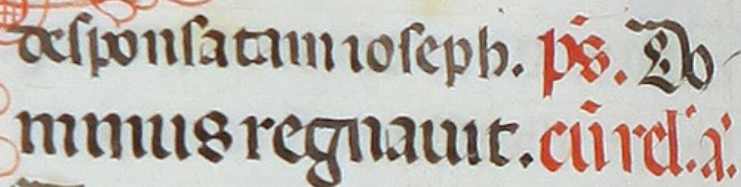 desponsatam ioseph. p̄s. Do-
minus regnauit. cū rel. a.